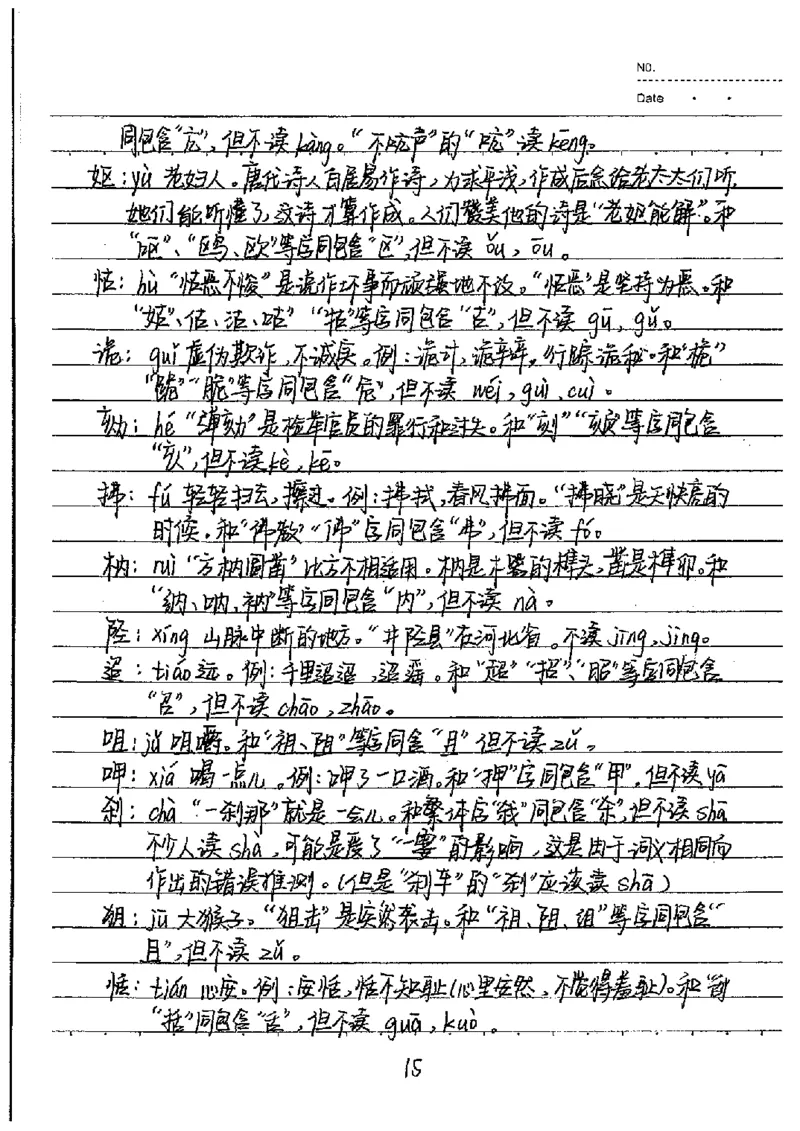 NO.
Date
同包含“亢”，但不读kàng。“不吭声”的“吭”读kēng。
妪：yù 老妇人。唐代诗人白居易作诗，力求平浅，作成后念给老太太们听，
她们能听懂了，这诗才算作成。人们赞美他的诗是“老妪能解”。和
“呕”、“鸥、欧”等字同包含“区”，但不读 ǒu，ōu。
怙：hù “怙恶不悛”是说作坏事而顽强地不改。“怙恶”是坚持为恶。和
“姑”、估、沽、咕” “括”等字同包含“古”，但不读 gū，gǔ。
诡：guǐ 虚伪欺诈，不诚实。例：诡计，诡辩，行踪诡秘。和“桅”
“跪”“脆”等字同包含“危”，但不读 wéi，guì、cuì。
劾：hé “弹劾”是检举官员的罪行和过失。和“刻”“颏”等字同包含
“亥”，但不读kè，kē。
拂：fú 轻轻扫去，擦过。例：拂拭，春风拂面。“拂晓”是天快亮的
时候。和“佛教”“佛”字同包含“弗”，但不读 fó。
枘：ruì “方枘圆凿”比方不相适用。枘是木器的榫头，凿是榫卯。和
“纳、呐、衲”等字同包含“内”，但不读 nà。
陉：xíng 山脉中断的地方。“井陉县”在河北省。不读 jīng，jìng。
迢：tiáo 远。例：千里迢迢，迢遥。和“超”“招”、“昭”等字同包含
“召”，但不读 chāo，zhāo。
咀：jǔ 咀嚼。和“祖、阻”等字同含“且”但不读 zǔ。
呷：xiá 喝一点儿。例：呷了一口酒。和“押”字同包含“甲”，但不读yā
刹：chà “一刹那”就是一会儿。和繁体字“殺”同包含“杀”，但不读 shā
不少人读 shà，可能是受了“一霎”的影响，这是由于词义相同而
作出的错误推测。（但是“刹车”的“刹”应该读 shā）
狙：jū 大猴子。“狙击”是突然袭击。和“祖、阻、组”等字同包含“
且”，但不读 zǔ。
恬：tián 心安。例：安恬，恬不知耻（心里安然，不觉得羞耻）。和“刮
“括”同包含“舌”，但不读 guā，kuò。
15